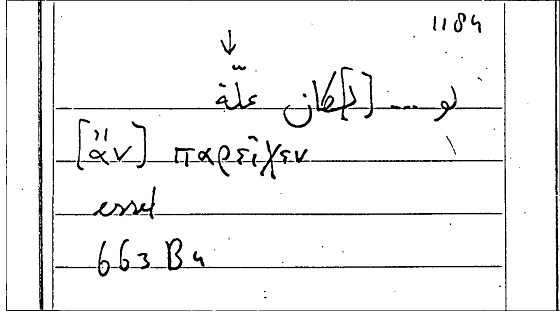 1184
لو .... [لـ]كان علّة
[ἂν] παρεῖχεν
essel
663 B4